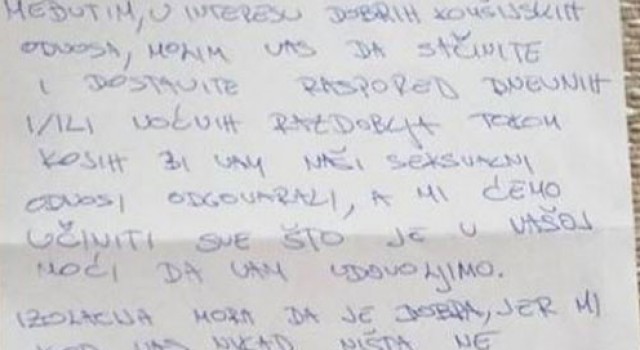 MEĐUTIM, U INTERESU DOBRIH KOMŠIJSKIH
ODNOSA, MOLIM VAS DA SAČINITE
I DOSTAVITE RASPORED DNEVNIH
I/ILI NOĆNIH RAZDOBLJA TOKOM
KOJIH BI VAM NAŠI SEKSUALNI
ODNOSI ODGOVARALI, A MI ĆEMO
UČINITI SVE ŠTO JE U VAŠOJ
MOĆI DA VAM UDOVOLJIMO.
IZOLACIJA MORA DA JE DOBRA, JER MI
KOD VAS NIKAD NIŠTA NE